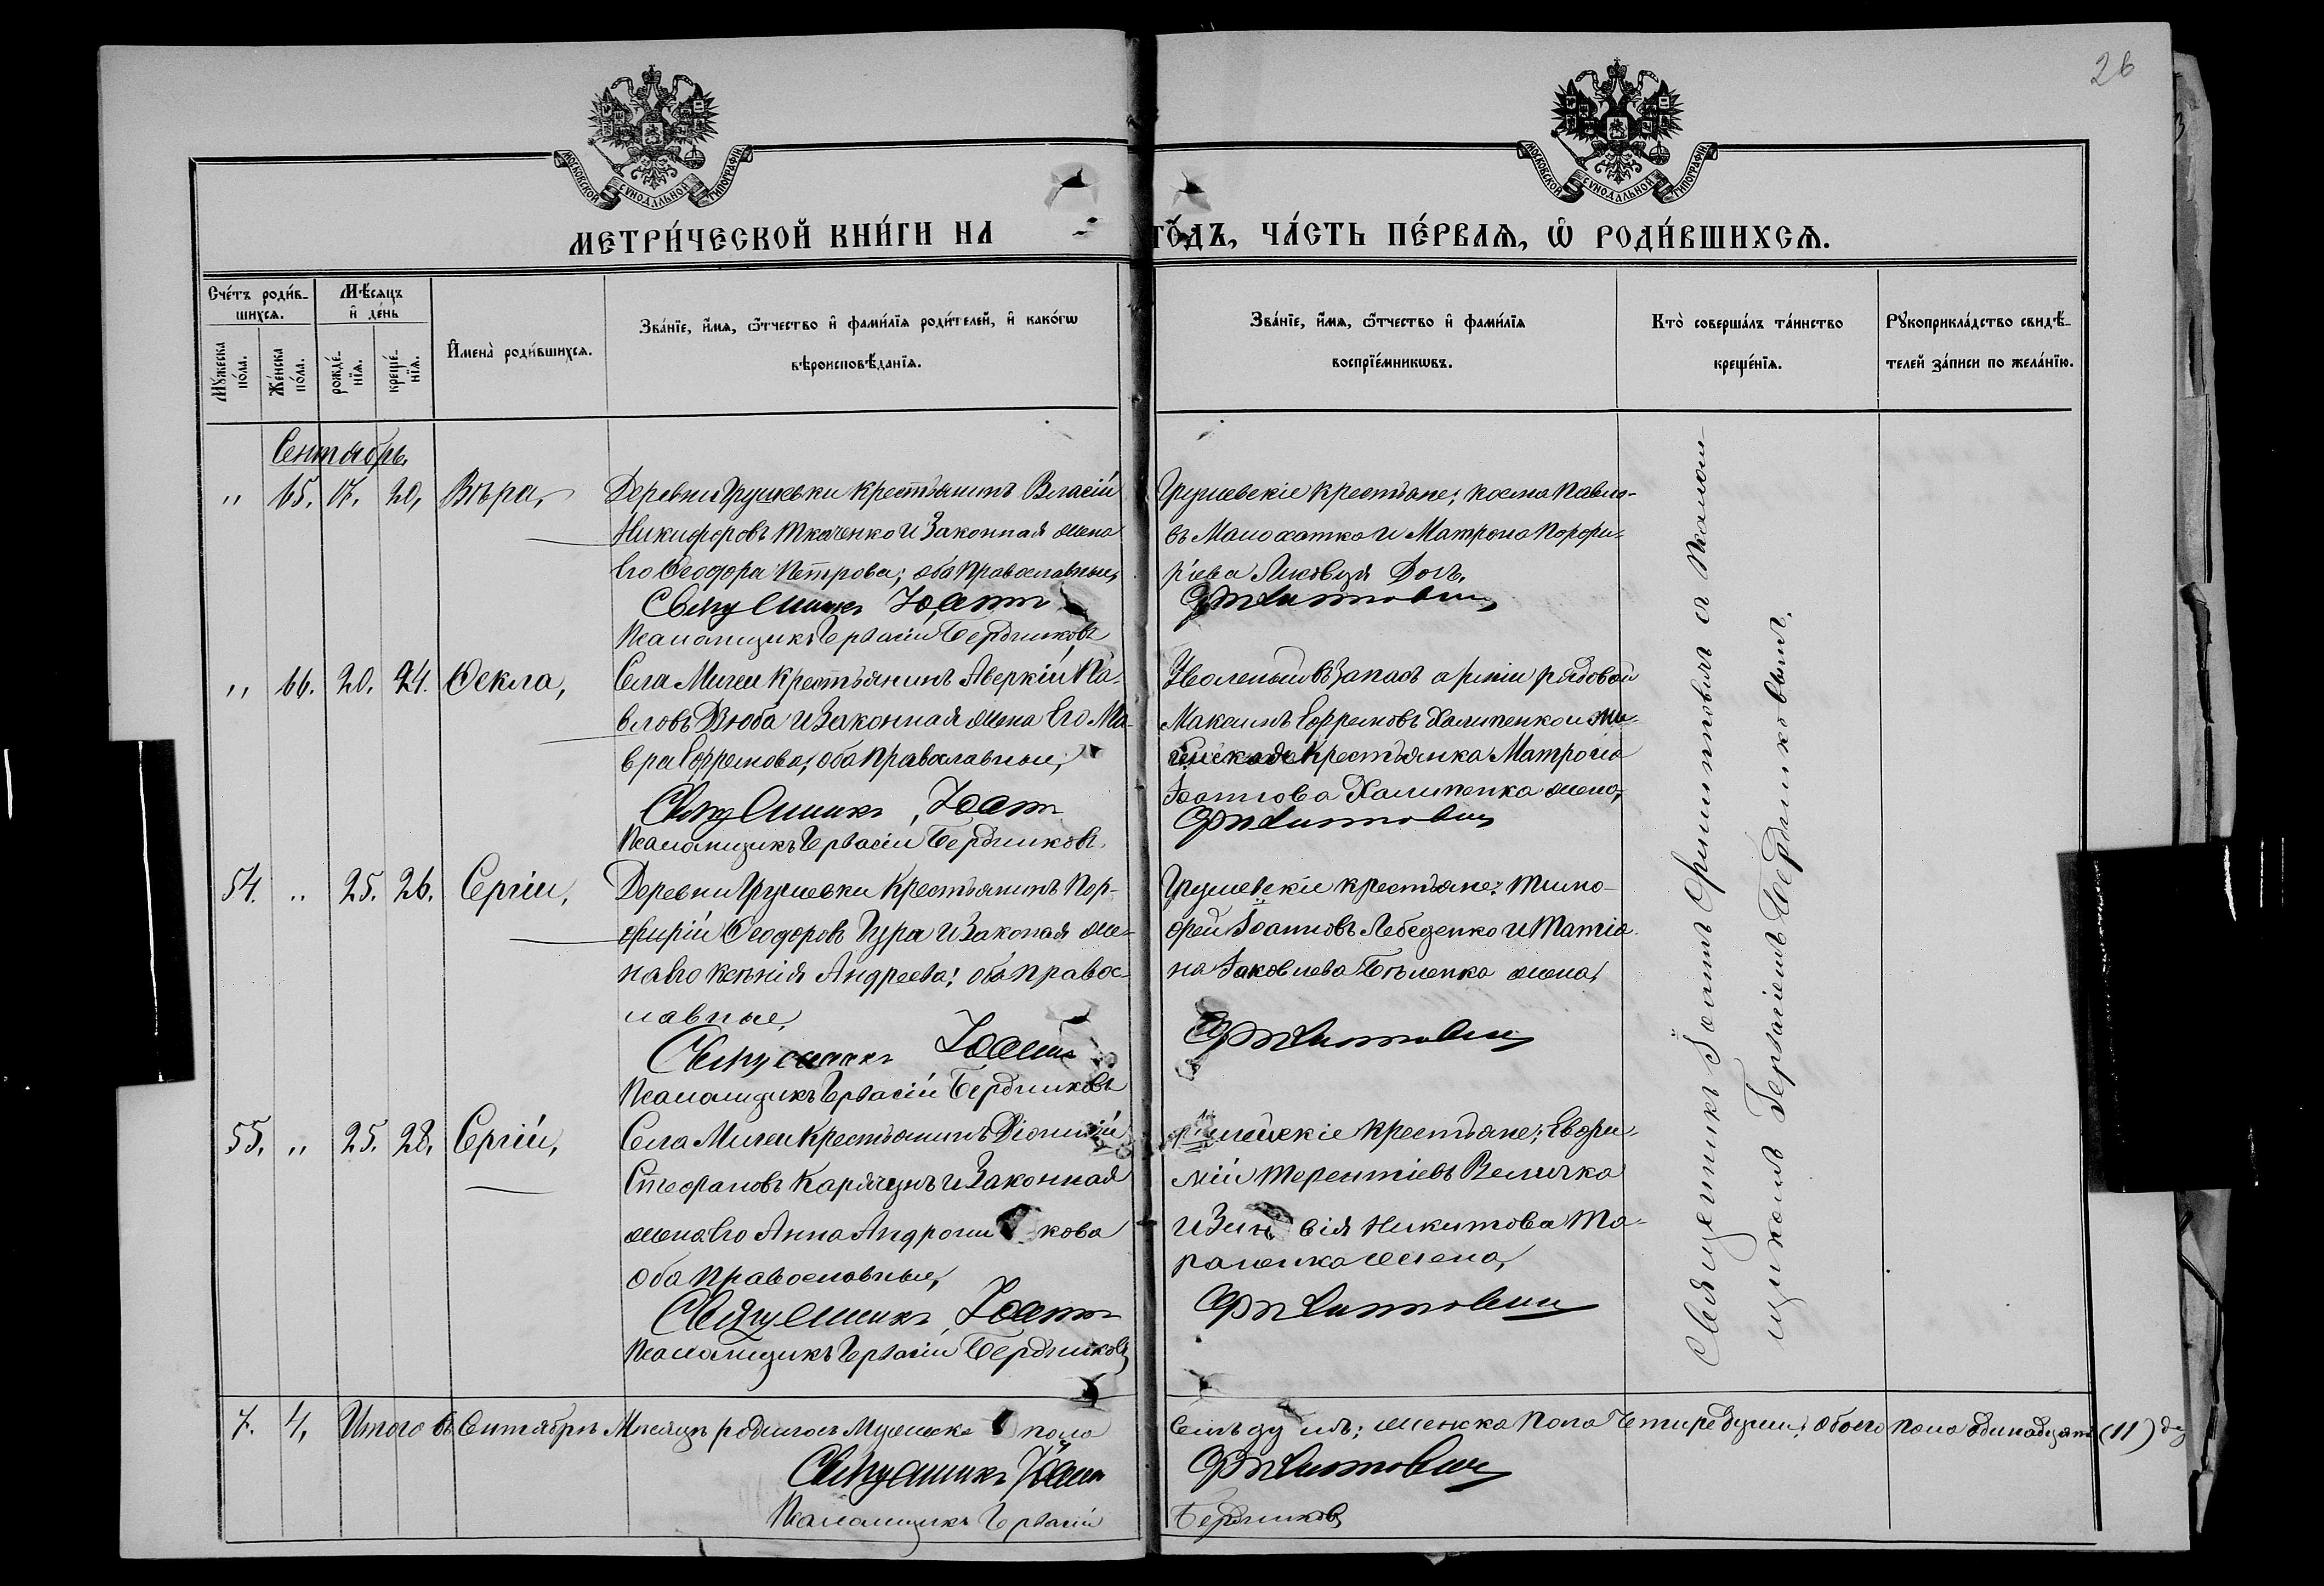 26
МОСКОВСКОЙ СУНОДАЛЬНОЙ ТИПОГРАФІИ
МОСКОВСКОЙ СУНОДАЛЬНОЙ ТИПОГРАФІИ
МЕТРИ́ЧЕСКОЙ КНИ́ГИ НА ГО́ДЪ, ЧА́СТЬ ПЕ́РВАѦ, Ѡ҆ РОДИ́ВШИХСѦ.
Сче́тъ роди́в-
шихсѧ.
Мꙋ́жеска по́ла.
Же́нска по́ла.
Мѣ́сѧцъ
и҆ де́нь
рожде́-
нїѧ.
креще́-
нїѧ.
И҆мена̀ роди́вшихсѧ.
Зва́нїе, и҆́мѧ, ѻ҆́тчество и҆ фами́лїѧ роди́телей, и҆ како́гѡ
вѣроисповѣ́данїѧ.
Зва́нїе, и҆́мѧ, ѻ҆́тчество и҆ фами́лїѧ
воспрїе́мникѡвъ.
Кто̀ соверша́лъ та́инство
креще́нїѧ.
Рꙋкоприкла́дство свидѣ́-
телей за́писи по жела́нїю.
Сентябрь
" 65. 17. 20, Вѣра,
Деревни Грушевки крестьянинъ Власій
Никифоровъ Ткаченко и Законная жена
Его Ѳеодора Петрова; оба православные,
Священникъ Іоаннъ
Псаломщикъ Гервасій Бердниковъ
Грушевскіе крестьяне; Косма Павло-
въ Малохатко и Матрона Порфи-
ріева
" 66. 20. 24. Ѳекла,
Села Мигеи Крестьянинъ Аверкій Па-
вловъ Дзюба и Законная жена Его Ма-
вра Ефремова; оба православные,
Священникъ, Іоаннъ
Псаломщикъ Гервасій Бердниковъ
Уволеный въ запасъ арміи рядовой
Максимъ Ефремовъ Халипенко и Ми-
гейская крестьянка Матрона
Іоаннова Халипенка жена,
54. " 25. 26. Сергій,
Деревни Грушевки Крестьянинъ Пор-
фирій Ѳеодоровъ Гура и Законая же-
на Его Ксенія Андреева; оба правос-
лавные,
Священникъ Іоаннъ
Псаломщикъ Гервасій Бердниковъ
Грушевскіе крестьяне: Тимо-
фей Іоанновъ Лебеденко и Татіа-
на Іаковлева Бѣленка жена,
55. " 25. 28. Сергій,
Села Мигеи Крестьянинъ Діонисій
Стефановъ Карячунъ и Законная
жена Его Анна Андроникова
Оба православные,
Священникъ, Іоаннъ
Псаломщикъ Гервасій Бердниковъ
крестьяне; Евфи-
мій Терентіевъ Величко
и Зиновія Никитова Та-
раненка жена,
Священникъ Іоаннъ с Псалом-
щикомъ Гервасіемъ Бердниковымъ.
7. 4, Итого въ Сентябрѣ Мѣсяцѣ родилось Мужеска пола
Семь душъ; женска пола четыре души; обоего пола одинадцать (11) д
Священникъ Іоаннъ
Псаломщикъ Гервасій
Бердниковъ